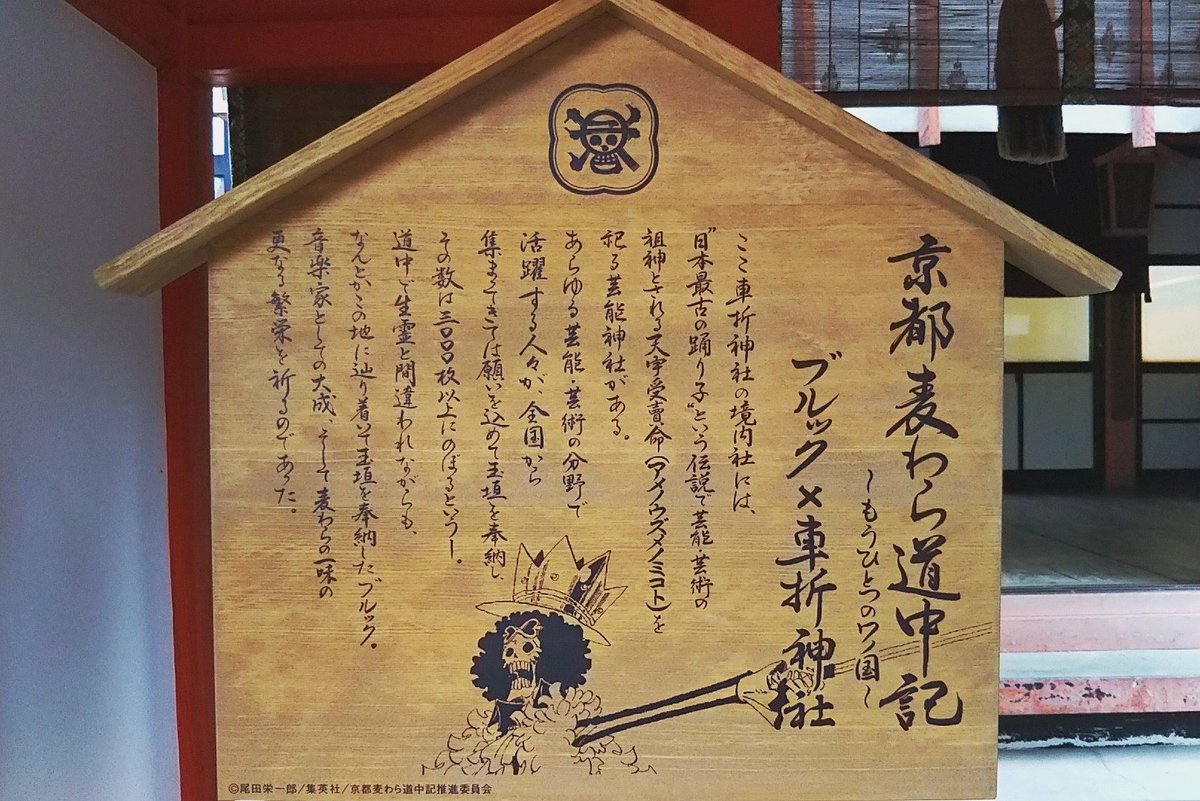 京都麦わら道中記
～もうひとつのワノ国～
ブルック×車折神社
ここ車折神社の境内社には、
“日本最古の踊り子”という伝説で芸能・芸術の
祖神とされる天宇受賣命(アメノウズメノミコト)を
祀る芸能神社がある。
あらゆる芸能・芸術の分野で
活躍する人々が、全国から
集まってきては願いを込めて玉垣を奉納し、
その数は三〇〇〇枚以上にのぼるという―。
道中で生霊と間違われながらも、
なんとかこの地に辿り着いて玉垣を奉納したブルック。
音楽家としての大成、そして麦わらの一味の
更なる繁栄を祈るのであった。
©尾田栄一郎/集英社/京都麦わら道中記推進委員会